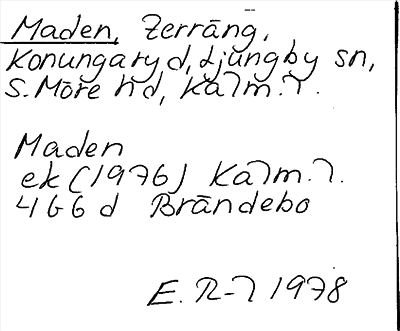 Maden, Terräng,
Konungaryd, Ljungby sn,
S. Möre hd, Kalm. l.
Maden
ek (1976) Kalm. l.
4G6d Brändebo
E. R-l 1978